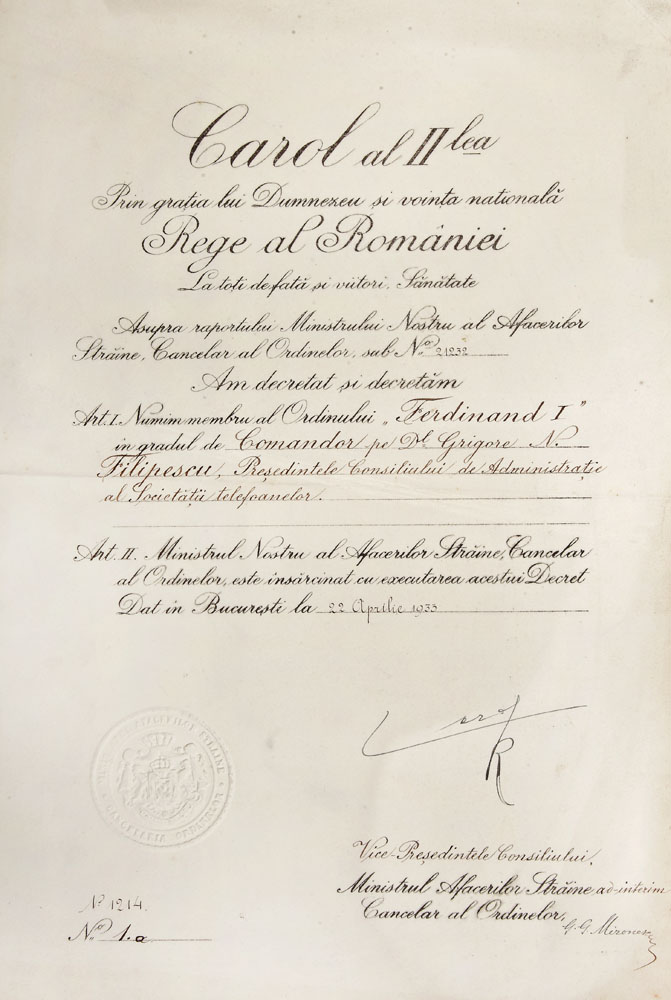 Carol al II lea
Prin grația lui Dumnezeu și voința națională
Rege al României
La toți de față și viitori, Sănătate
Asupra raportului Ministrului Nostru al Afacerilor
Străine, Cancelar al Ordinelor, sub No. 21232
Am decretat și decretăm
Art. I. Numim membru al Ordinului „Ferdinand I"
în gradul de Comandor pe Dl. Grigore N.
Filipescu, Președintele Consiliului de Administrație
al Societății telefoanelor.
Art. II. Ministrul Nostru al Afacerilor Străine, Cancelar
al Ordinelor, este însărcinat cu executarea acestui Decret
Dat în București la 22 Aprilie 1933
Carol R
Vice-Președintele Consiliului,
Ministrul Afacerilor Străine ad-interim
Cancelar al Ordinelor,
G. G. Mironescu
No 1214.
No. 1.a